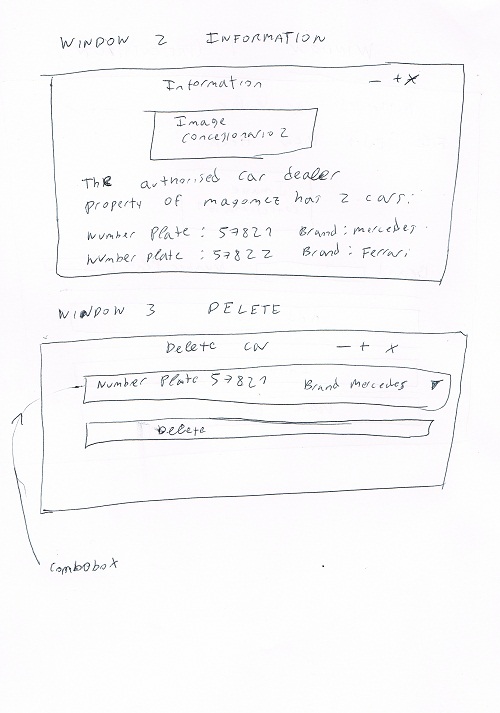 WINDOW 2 INFORMATION
Information - + x
Image
concessionario 2
The authorised car dealer
property of magomez has 2 cars:
Number Plate : 57821 Brand : mercedes.
Number plate : 57822 Brand : Ferrari
WINDOW 3 DELETE
Delete car - + x
Number Plate 57821 Brand mercedes ▼
Delete
combobox